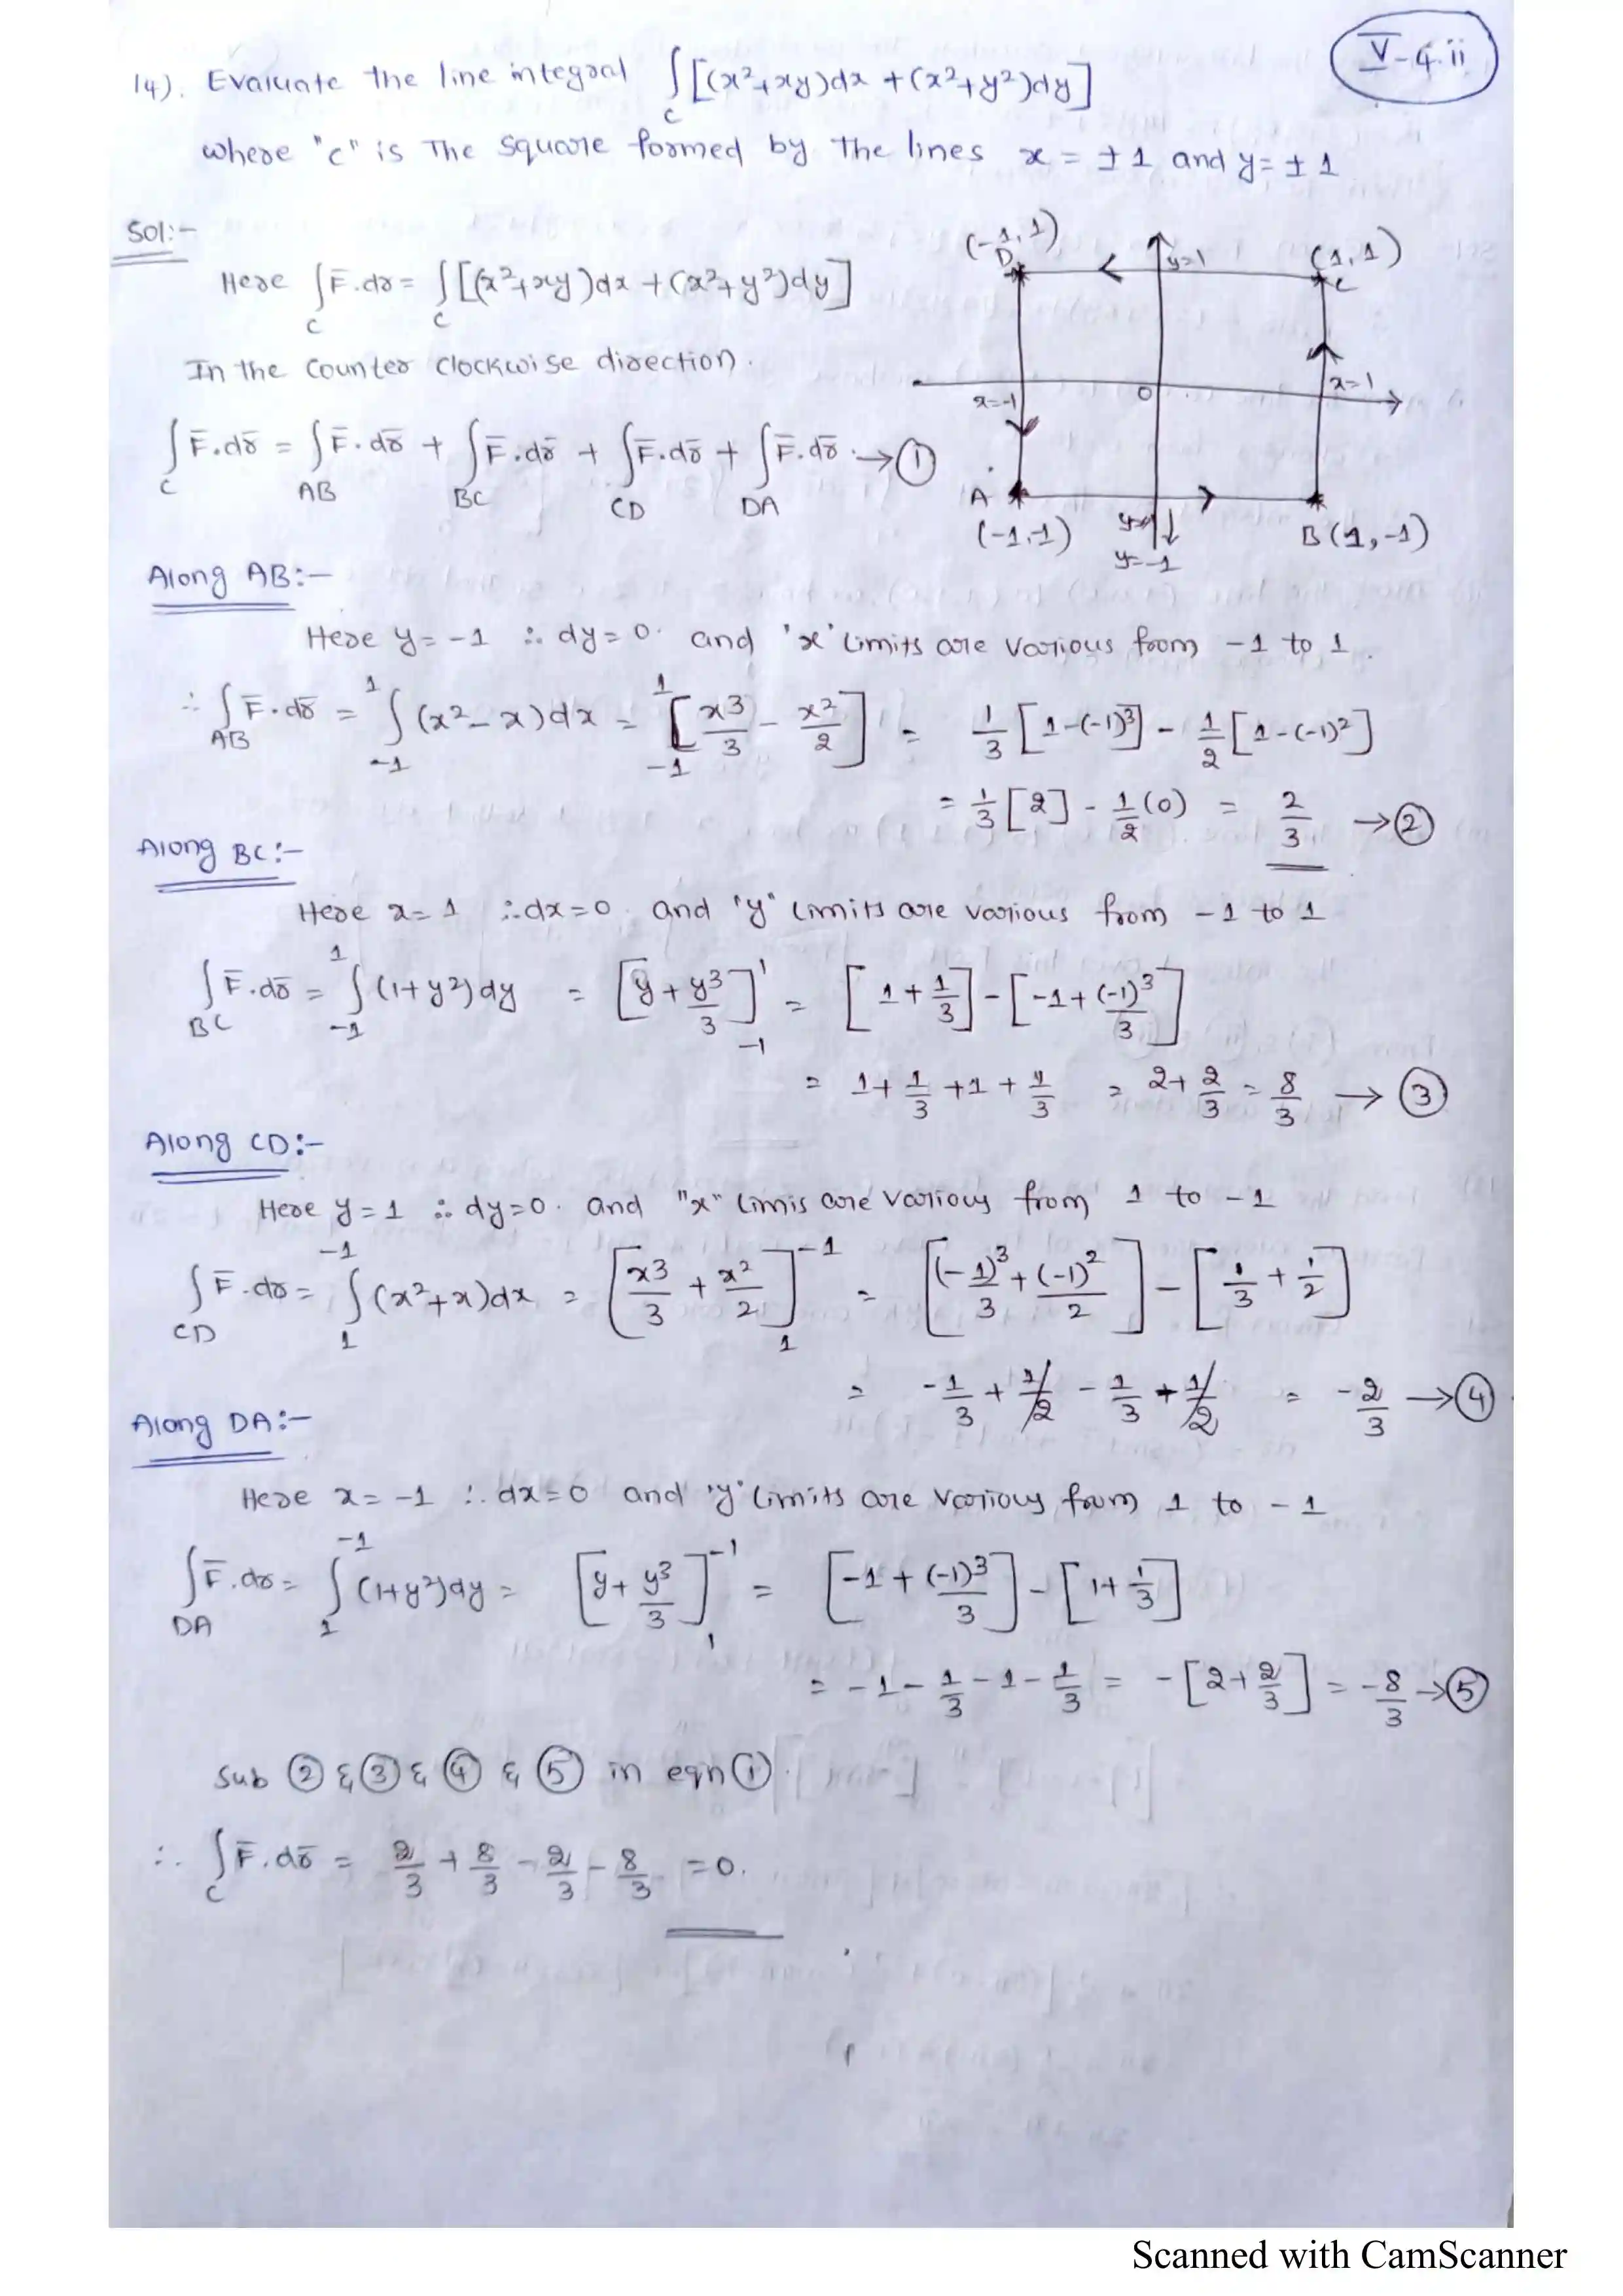 V-4.ii
14). Evaluate the line integral ∫_C [(x²+xy)dx + (x²+y²)dy]
where "c" is The square formed by the lines x = ±1 and y = ±1
Sol:-
Here ∫_C F̄.dr̄ = ∫_C [(x²+xy)dx + (x²+y²)dy]
In the counter clockwise direction.
∫_C F̄.dr̄ = ∫_AB F̄.dr̄ + ∫_BC F̄.dr̄ + ∫_CD F̄.dr̄ + ∫_DA F̄.dr̄ → ①
(-1,1)
D
y=1
(1,1)
C
x=-1
0
x=1
A
(-1,-1)
y=-1
B(1,-1)
Along AB:-
Here y = -1 ∴ dy = 0. and 'x' limits are various from -1 to 1.
∴ ∫_AB F̄.dr̄ = ∫_{-1}^{1} (x²-x)dx = [x³/3 - x²/2]_{-1}^{1} = 1/3 [1-(-1)³] - 1/2 [1-(-1)²]
= 1/3 [2] - 1/2 (0) = 2/3 → ②
Along BC:-
Here x = 1 ∴ dx = 0. and "y" limits are various from -1 to 1
∫_BC F̄.dr̄ = ∫_{-1}^{1} (1+y²)dy = [y + y³/3]_{-1}^{1} = [1 + 1/3] - [-1 + (-1)³/3]
= 1 + 1/3 + 1 + 1/3 = 2 + 2/3 = 8/3 → ③
Along CD:-
Here y = 1 ∴ dy = 0. and "x" limis are various from 1 to -1
∫_CD F̄.dr̄ = ∫_{1}^{-1} (x²+x)dx = [x³/3 + x²/2]_{1}^{-1} = [(-1)³/3 + (-1)²/2] - [1/3 + 1/2]
= -1/3 + 1/2 - 1/3 + 1/2 = -2/3 → ④
Along DA:-
Here x = -1 ∴ dx = 0 and 'y' limits are various from 1 to -1
∫_DA F̄.dr̄ = ∫_{1}^{-1} (1+y²)dy = [y + y³/3]_{1}^{-1} = [-1 + (-1)³/3] - [1 + 1/3]
= -1 - 1/3 - 1 - 1/3 = -[2 + 2/3] = -8/3 → ⑤
Sub ② & ③ & ④ & ⑤ in eqn ①.
∴ ∫_C F̄.dr̄ = 2/3 + 8/3 - 2/3 - 8/3 = 0.
Scanned with CamScanner